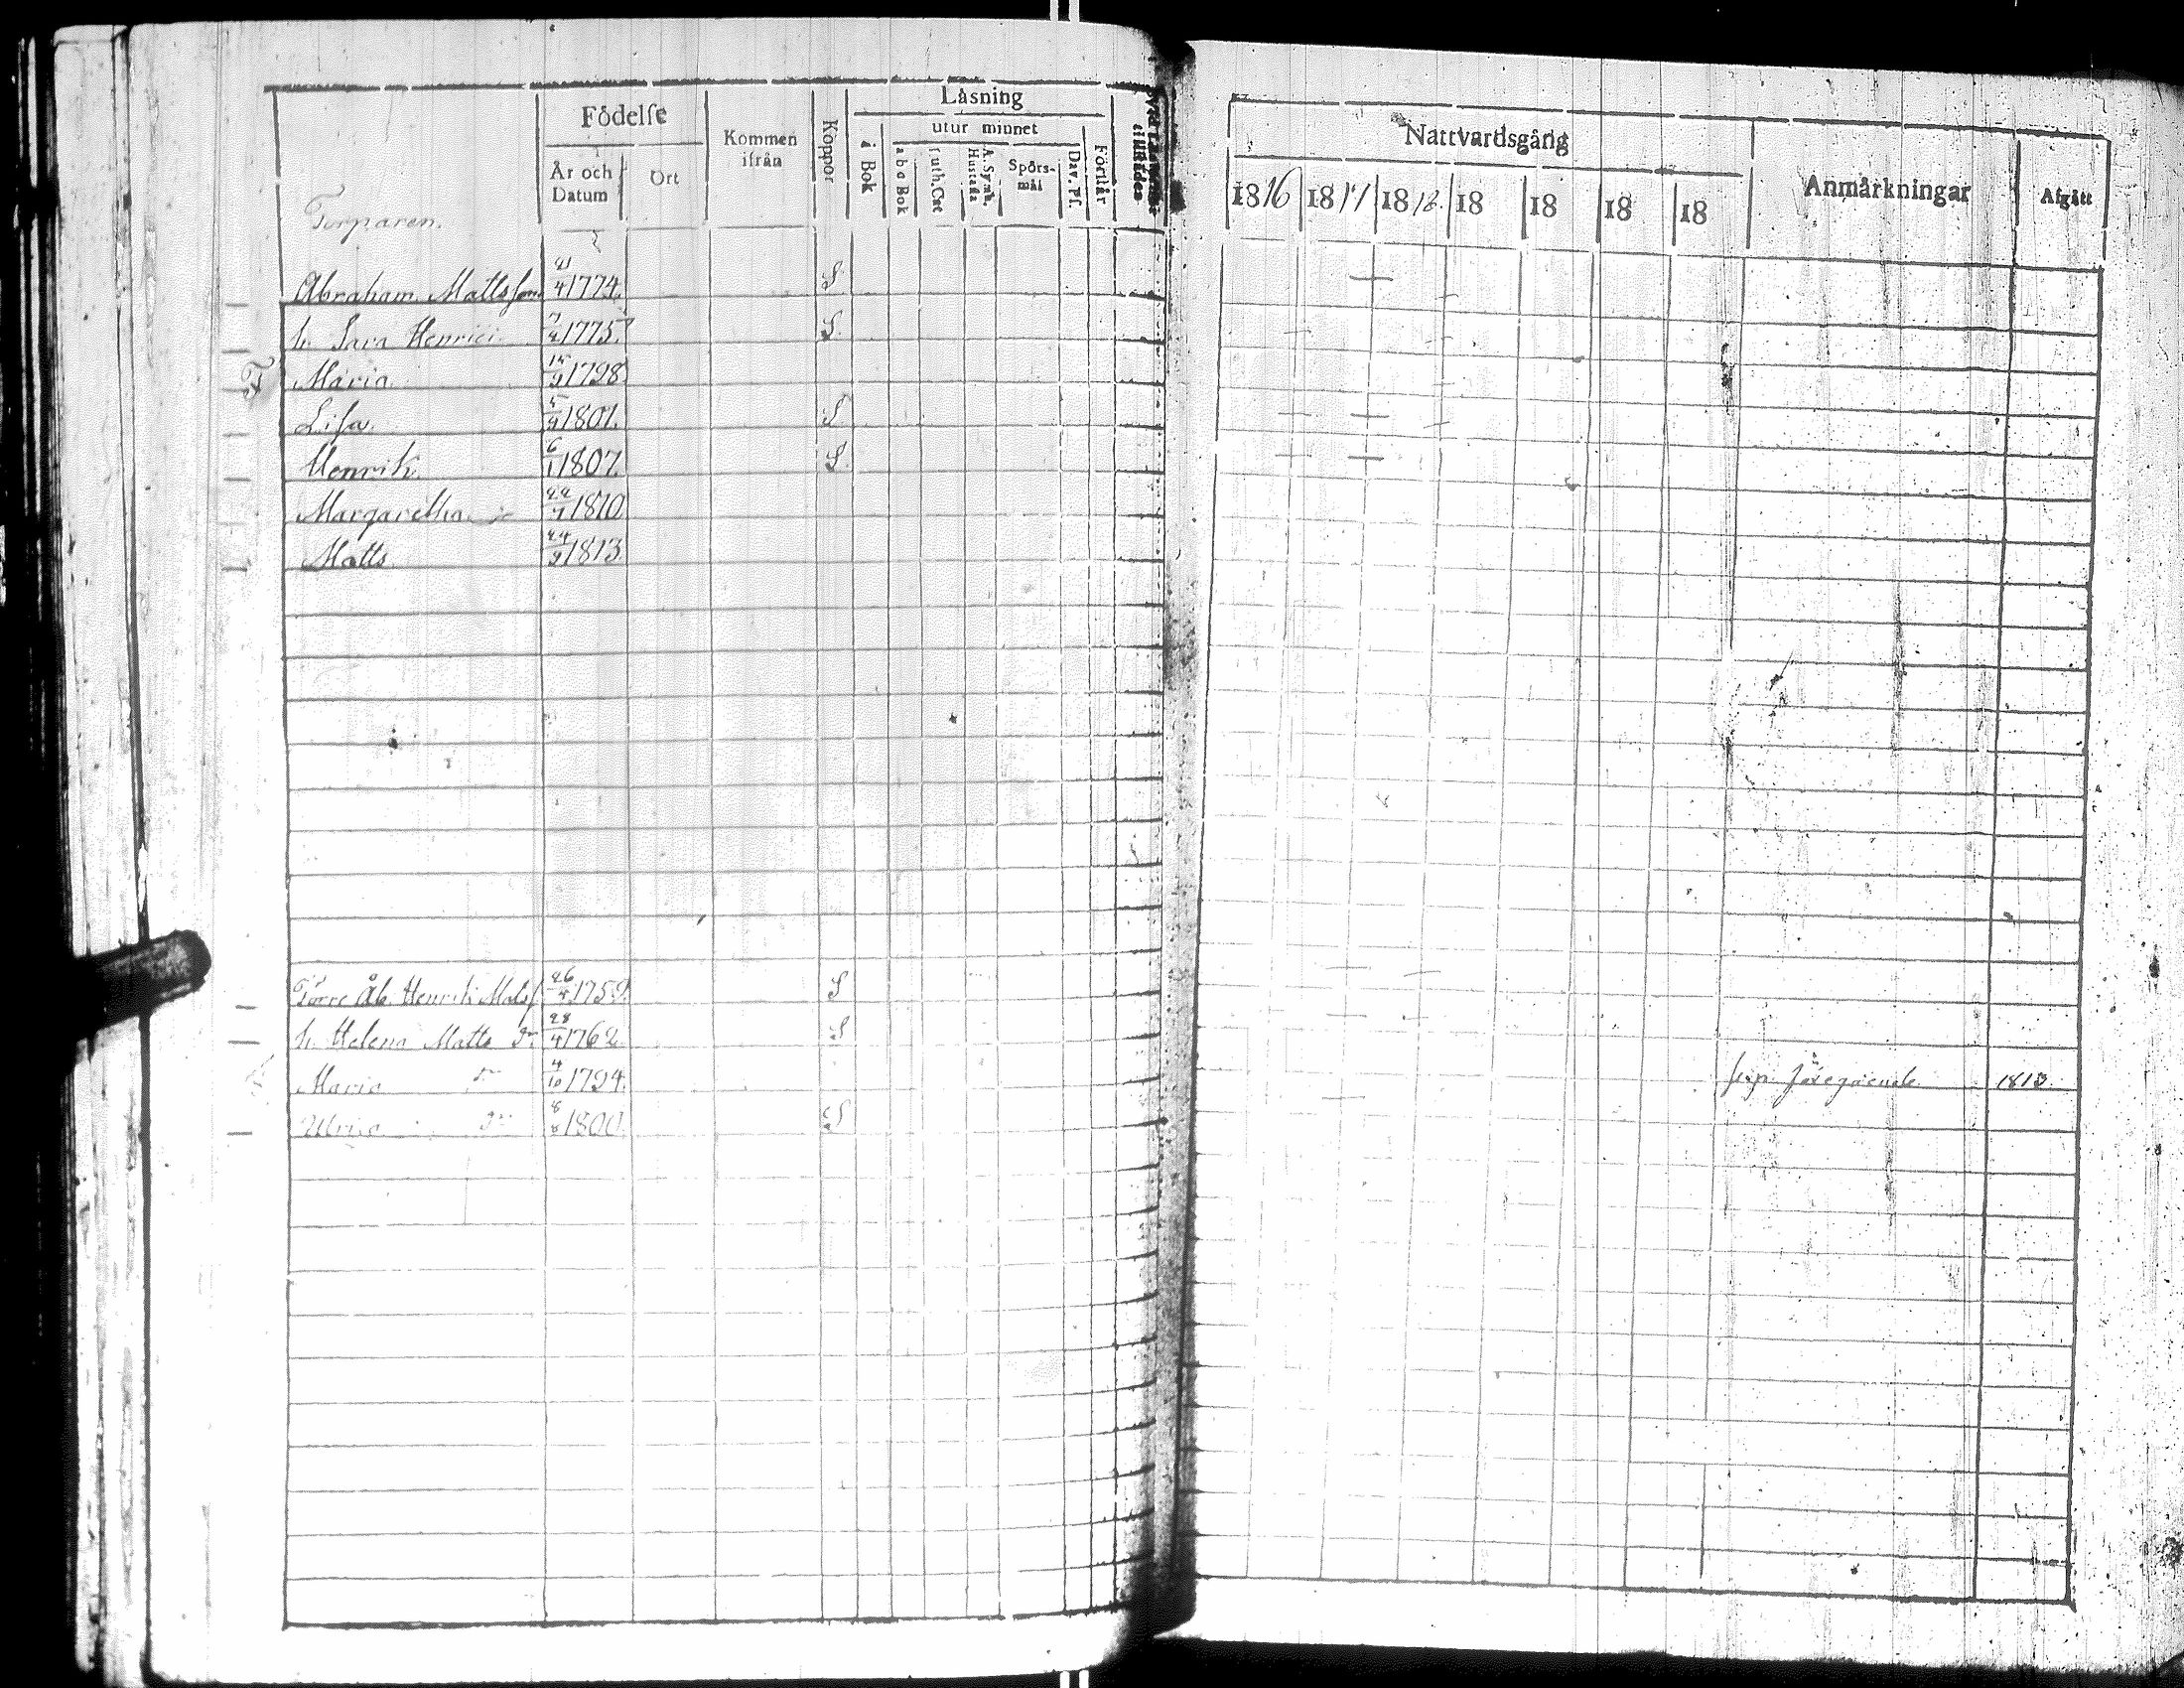 Födelse
Kommen ifrån
Koppor
Låsning
i Bok
utur minnet
a b c Bok
Luth. Cat
A. Symb. Hustafla
Spörsmål
Dav. Ps.
Förstår
År och Datum
Ort
Torparen.
Abraham Mattsson 21/4 1774. S
h. Sara Henrici 1775. S.
Maria 15/9 1798
Lisa. 5/9 1801. S
Henrik. 6/1 1807. S.
Margaretha 22/7 1810
Matts 24/9 1813
Henrik Matsf. 26/4 1759. S
h. Helena Matts dr 28/4 1762. S
Maria dr 4/10 1794.
Ulrica dr 8/8 1800. S
Nattvardsgång
Anmärkningar
Afgått
1816 1817 1818 18 18 18 18
föregående 1818